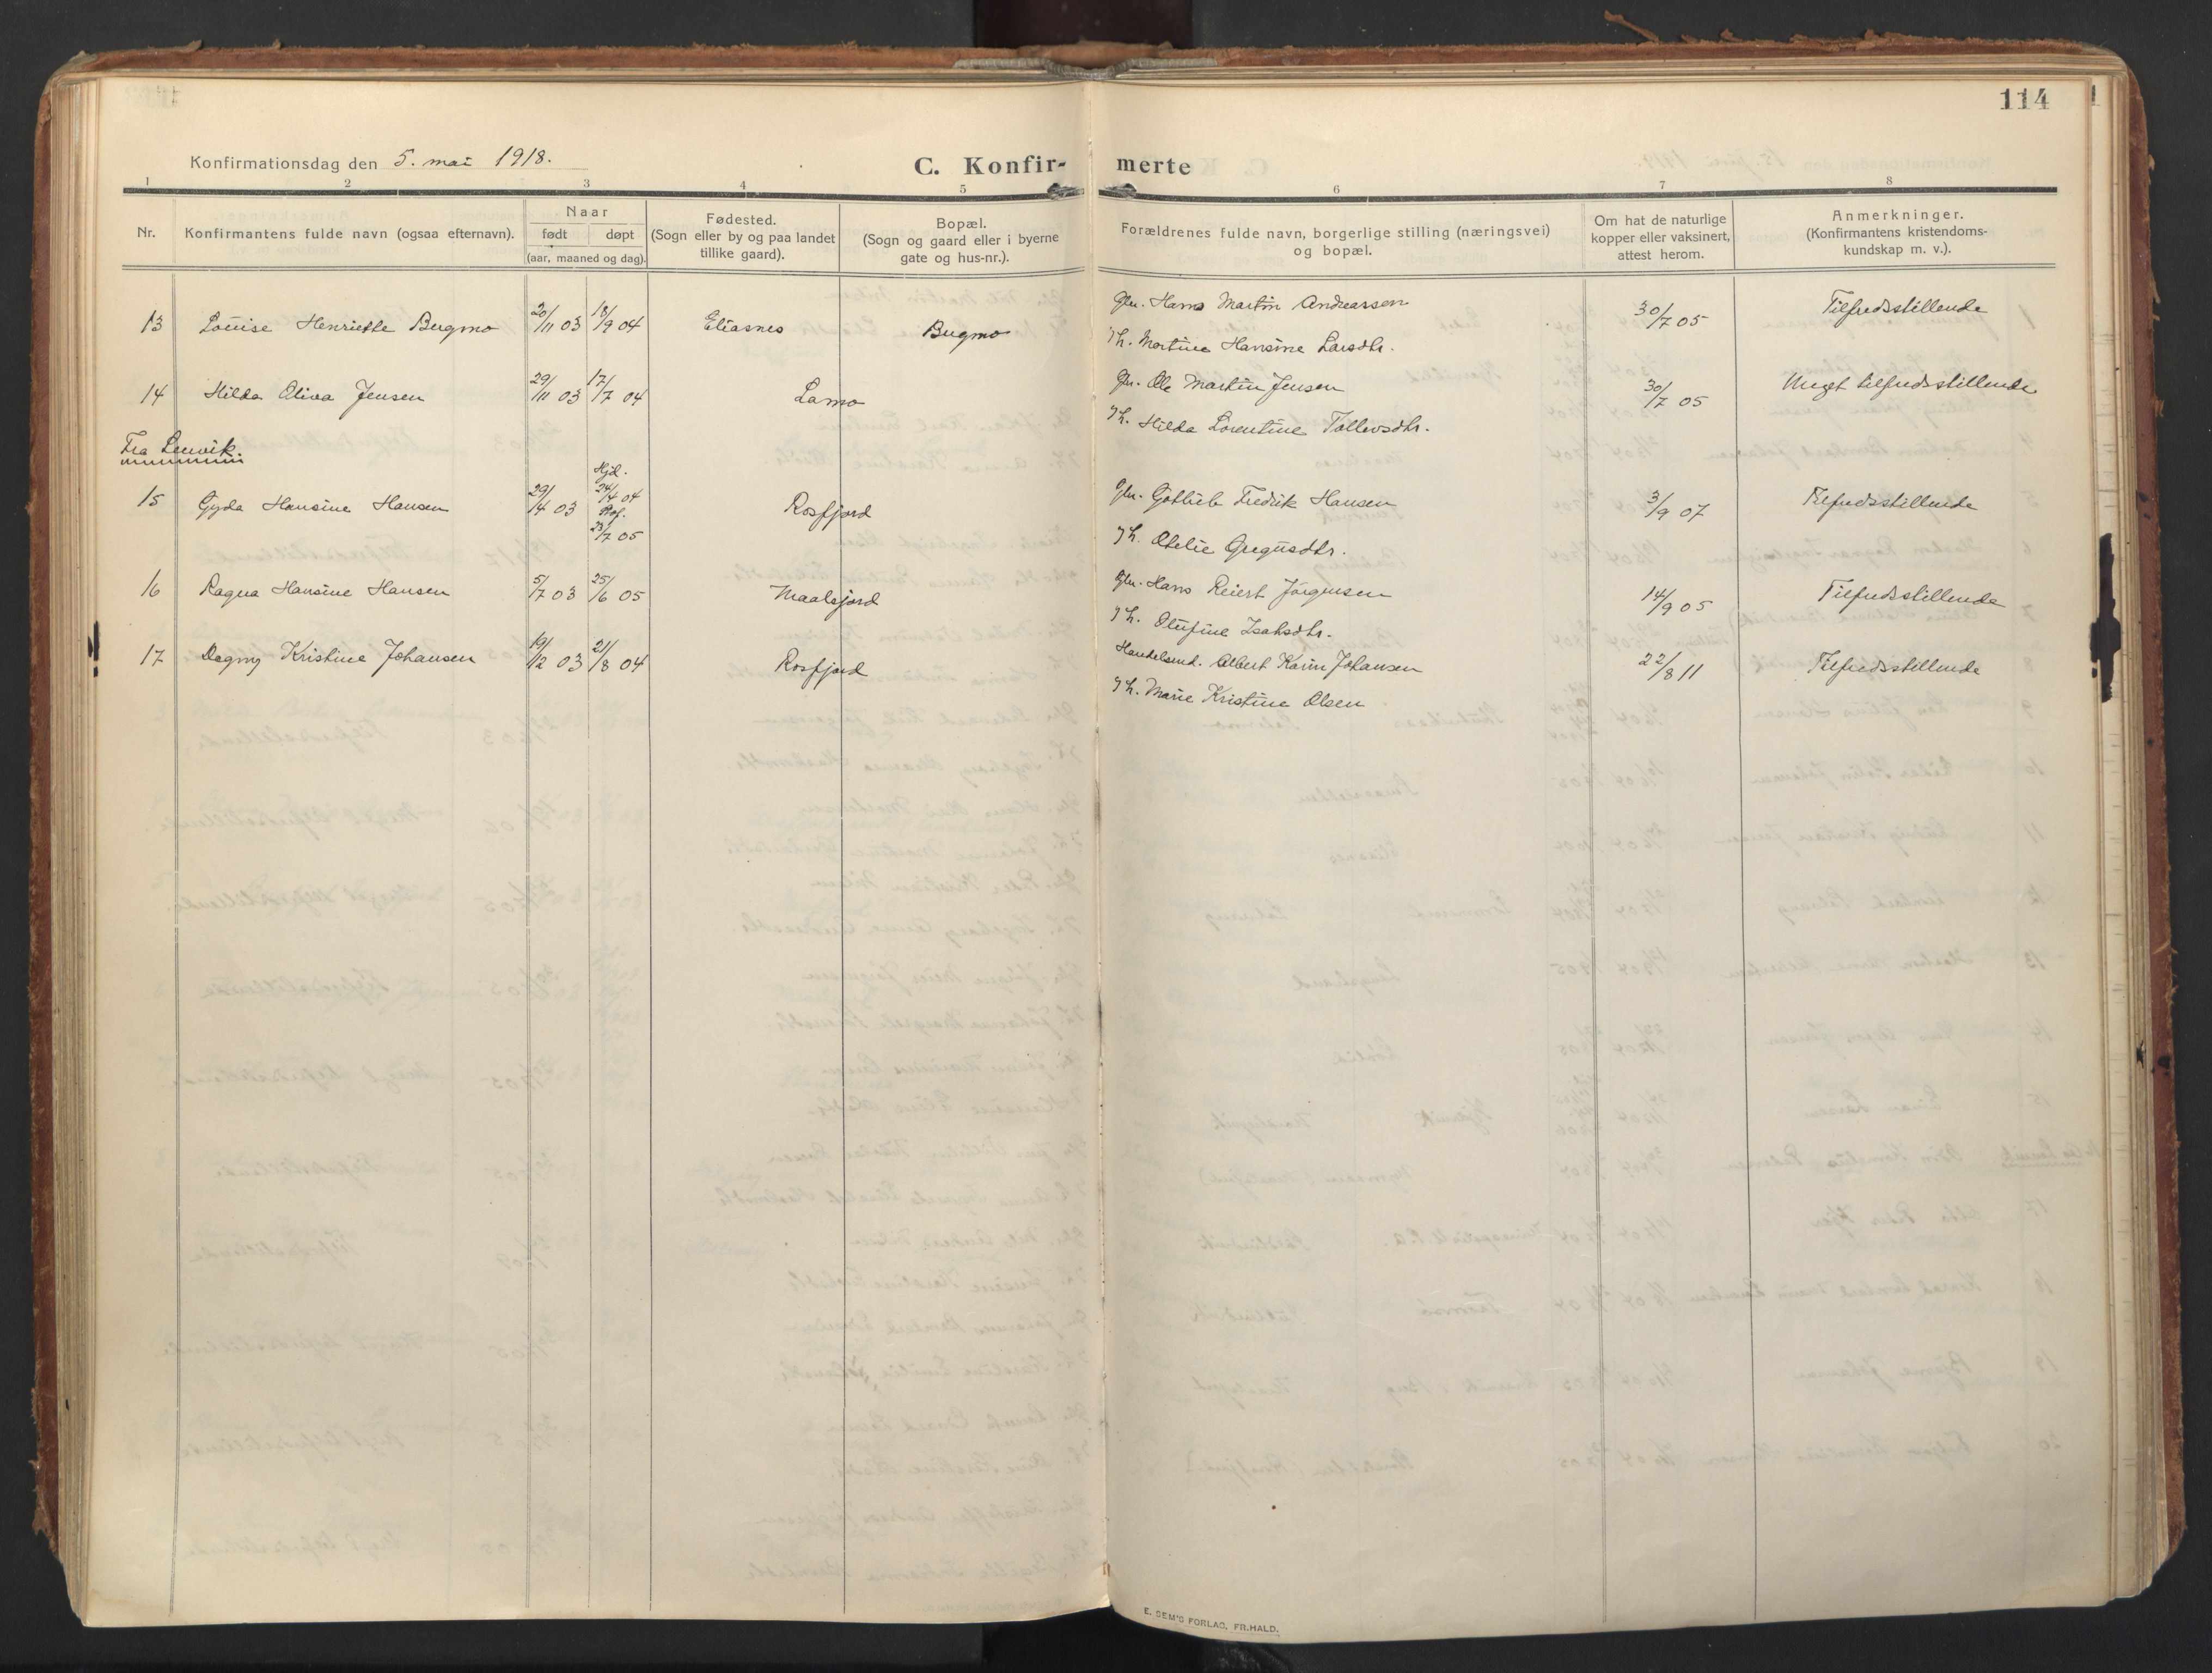 114
Konfirmationsdag den 5. mai 1918.
C. Konfir- merte
1 2 3 4 5 6 7 8
Nr.
Konfirmantens fulde navn (ogsaa efternavn).
Naar
født døpt
(aar, maaned og dag).
Fødested.
(Sogn eller by og paa landet
tillike gaard).
Bopæl.
(Sogn og gaard eller i byerne
gate og hus-nr.).
Forældrenes fulde navn, borgerlige stilling (næringsvei)
og bopæl.
Om hat de naturlige
kopper eller vaksinert,
attest herom.
Anmerkninger.
(Konfirmantens kristendoms-
kundskap m. v.).
13 Louise Henriette Bugmo 20/11 03 18/9 04 Eliasnes Bugmo Gbr. Hans Martin Andreassen 30/7 05 Tilfredsstillende
Th. Martine Hansine Larsdtr.
14 Hilda Oliva Jensen 29/11 03 17/7 04 Lamo Gbr. Ole Martin Jensen 30/7 05 Meget tilfredsstillende
Th. Hilda Lorentine Tollevsdtr.
Fra Lenvik.
15 Gyda Hansine Hansen 29/4 03 Hjd. 24/4 04 Rosfjord Gbr. Gotlieb Fredrik Hansen 3/9 07 Tilfredsstillende
23/7 05
Th. Otelie Gregusdtr.
16 Ragna Hansine Hansen 5/7 03 25/6 05 Maalsjord Gbr. Hans Reiert Jörgensen 14/9 05 Tilfredsstillende
Th. Olufine Isaksdtr.
17 Dagny Kristine Johansen 19/12 03 21/8 04 Rosfjord Handelsmd. Albert Karin Johansen 22/8 11 Tilfredsstillende
Th. Marie Kristine Olsen
E. SEM'S FORLAG, FR.HALD.